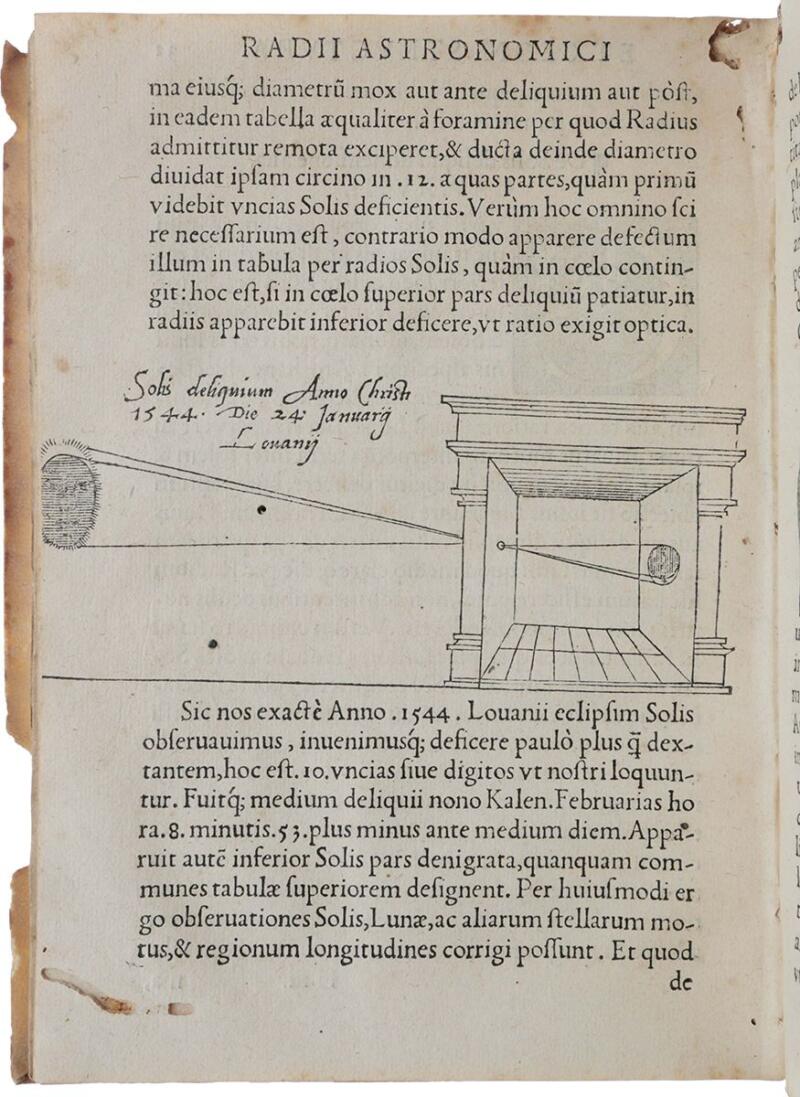 RADII ASTRONOMICI
ma eiusq́; diametrũ mox aut ante deliquium aut pòſt,
in eadem tabella æqualiter à foramine per quod Radius
admittitur remota exciperet,& ducta deinde diametro
diuidat ipſam circino in .12. æquas partes,quàm primũ
videbit vncias Solis deficientis. Verùm hoc omnino ſci
re neceſſarium eſt, contrario modo apparere defectum
illum in tabula per radios Solis, quàm in cœlo contin-
git: hoc eſt,ſi in cœlo ſuperior pars deliquiũ patiatur,in
radiis apparebit inferior deficere,vt ratio exigit optica.
Solis deliquium Anno Christi
1544. Die 24. Januarij
Louanij
Sic nos exactè Anno .1544. Louanii eclipſim Solis
obſeruauimus, inuenimusq́; deficere paulò plus q̃ dex-
tantem,hoc eſt. 10.vncias ſiue digitos vt noſtri loquun-
tur. Fuitq́; medium deliquii nono Kalen.Februarias ho
ra.8. minutis.53.plus minus ante medium diem.Appa-
ruit autẽ inferior Solis pars denigrata,quanquam com-
munes tabulæ ſuperiorem deſignent. Per huiuſmodi er
go obſeruationes Solis,Lunæ,ac aliarum ſtellarum mo-
tus,& regionum longitudines corrigi poſſunt. Et quod
de